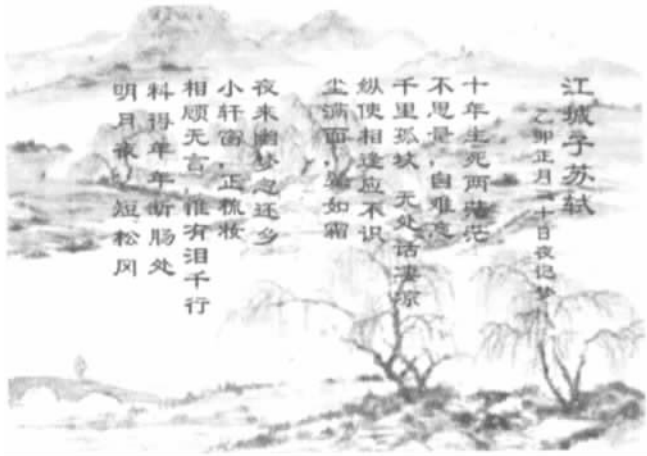 江城子苏轼
乙卯正月二十日夜记梦
十年生死两茫茫
不思量,自难忘
千里孤坟,无处话凄凉
纵使相逢应不识
尘满面,鬓如霜
夜来幽梦忽还乡
小轩窗,正梳妆
相顾无言,惟有泪千行
料得年年断肠处
明月夜,短松冈